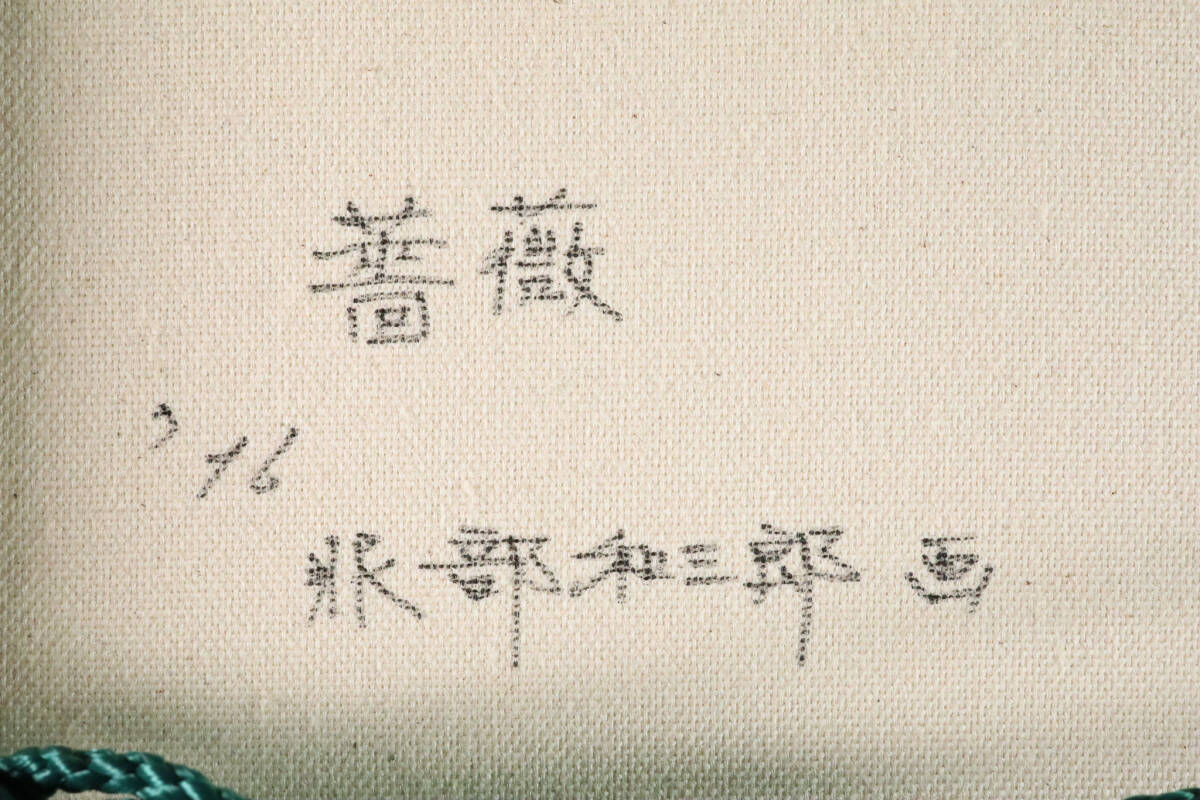 薔薇
'76
服部和三郎 画